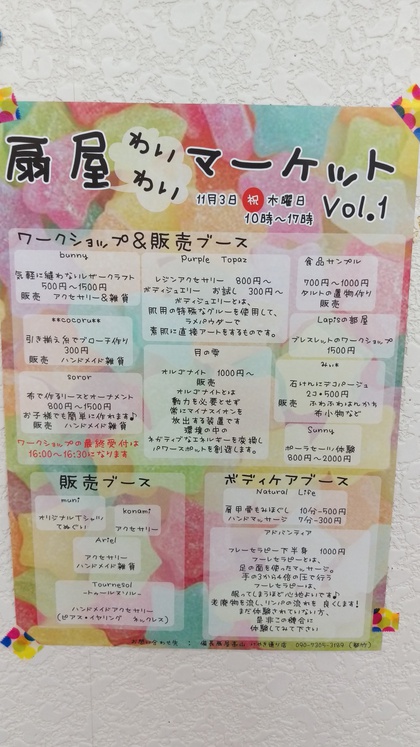 扇屋 わいわい マーケット
11月3日 祝 水曜日 Vol.1
10時〜17時
ワークショップ&販売ブース
bunny
気軽に縫わないレザークラフト
500円〜1500円
販売 アクセサリー&雑貨
**cocoru**
引き揃え糸でブローチ作り
300円
販売 ハンドメイド雑貨
soror
布で作るリースとオーナメント
800円〜1500円
お子様でも簡単に作れます♪
販売 ハンドメイド雑貨
ワークショップの最終受付は
16:00〜16:30になります
Purple Topaz
レジンアクセサリー 800円〜
ボディジュエリー お試し 300円〜
ボディジュエリーとは、
肌用の特殊なグルーを使用して、
ラメパウダーで
素肌に直接アートをするものです。
月の雫
オルゴナイト 1000円〜
販売
オルゴナイトとは
動力を必要とせず
常にマイナスイオンを
放出する装置です
環境の中の
ネガティブなエネルギーを変換し
パワースポットを創造します。
食品サンプル
700円〜1000円
タルトの置物作り
販売
Lapisの部屋
ブレスレットのワークショップ
1500円
石けんにデコパージュ
2コ*500円
販売 ふわふわはんかち
布小物など
Sunny
ポーセラーツ体験
800円〜2000円
販売ブース
muni
オリジナルTシャツ
てぬぐい
konami
アクセサリー
Ariel
アクセサリー
ハンドメイド雑貨
Tournesol
-トゥールヌソル-
ハンドメイドアクセサリー
(ピアス・イヤリング ネックレス)
ボディケアブース
Natural Life
肩甲骨もみほぐし 10分-500円
ハンドマッサージ 7分-300円
アドバンティア
フレーセラピー下半身 1000円
フーレセラピーは、
足の面を使ったマッサージ。
手の3から4倍の圧で行う
フーレセラピーは、
眠ってしまうほど心地よいです♪
老廃物を流し、リンパの流れを良くします!
まだ体験されていない方、
是非この機会に
体験してみて下さい
お問い合わせ先 :